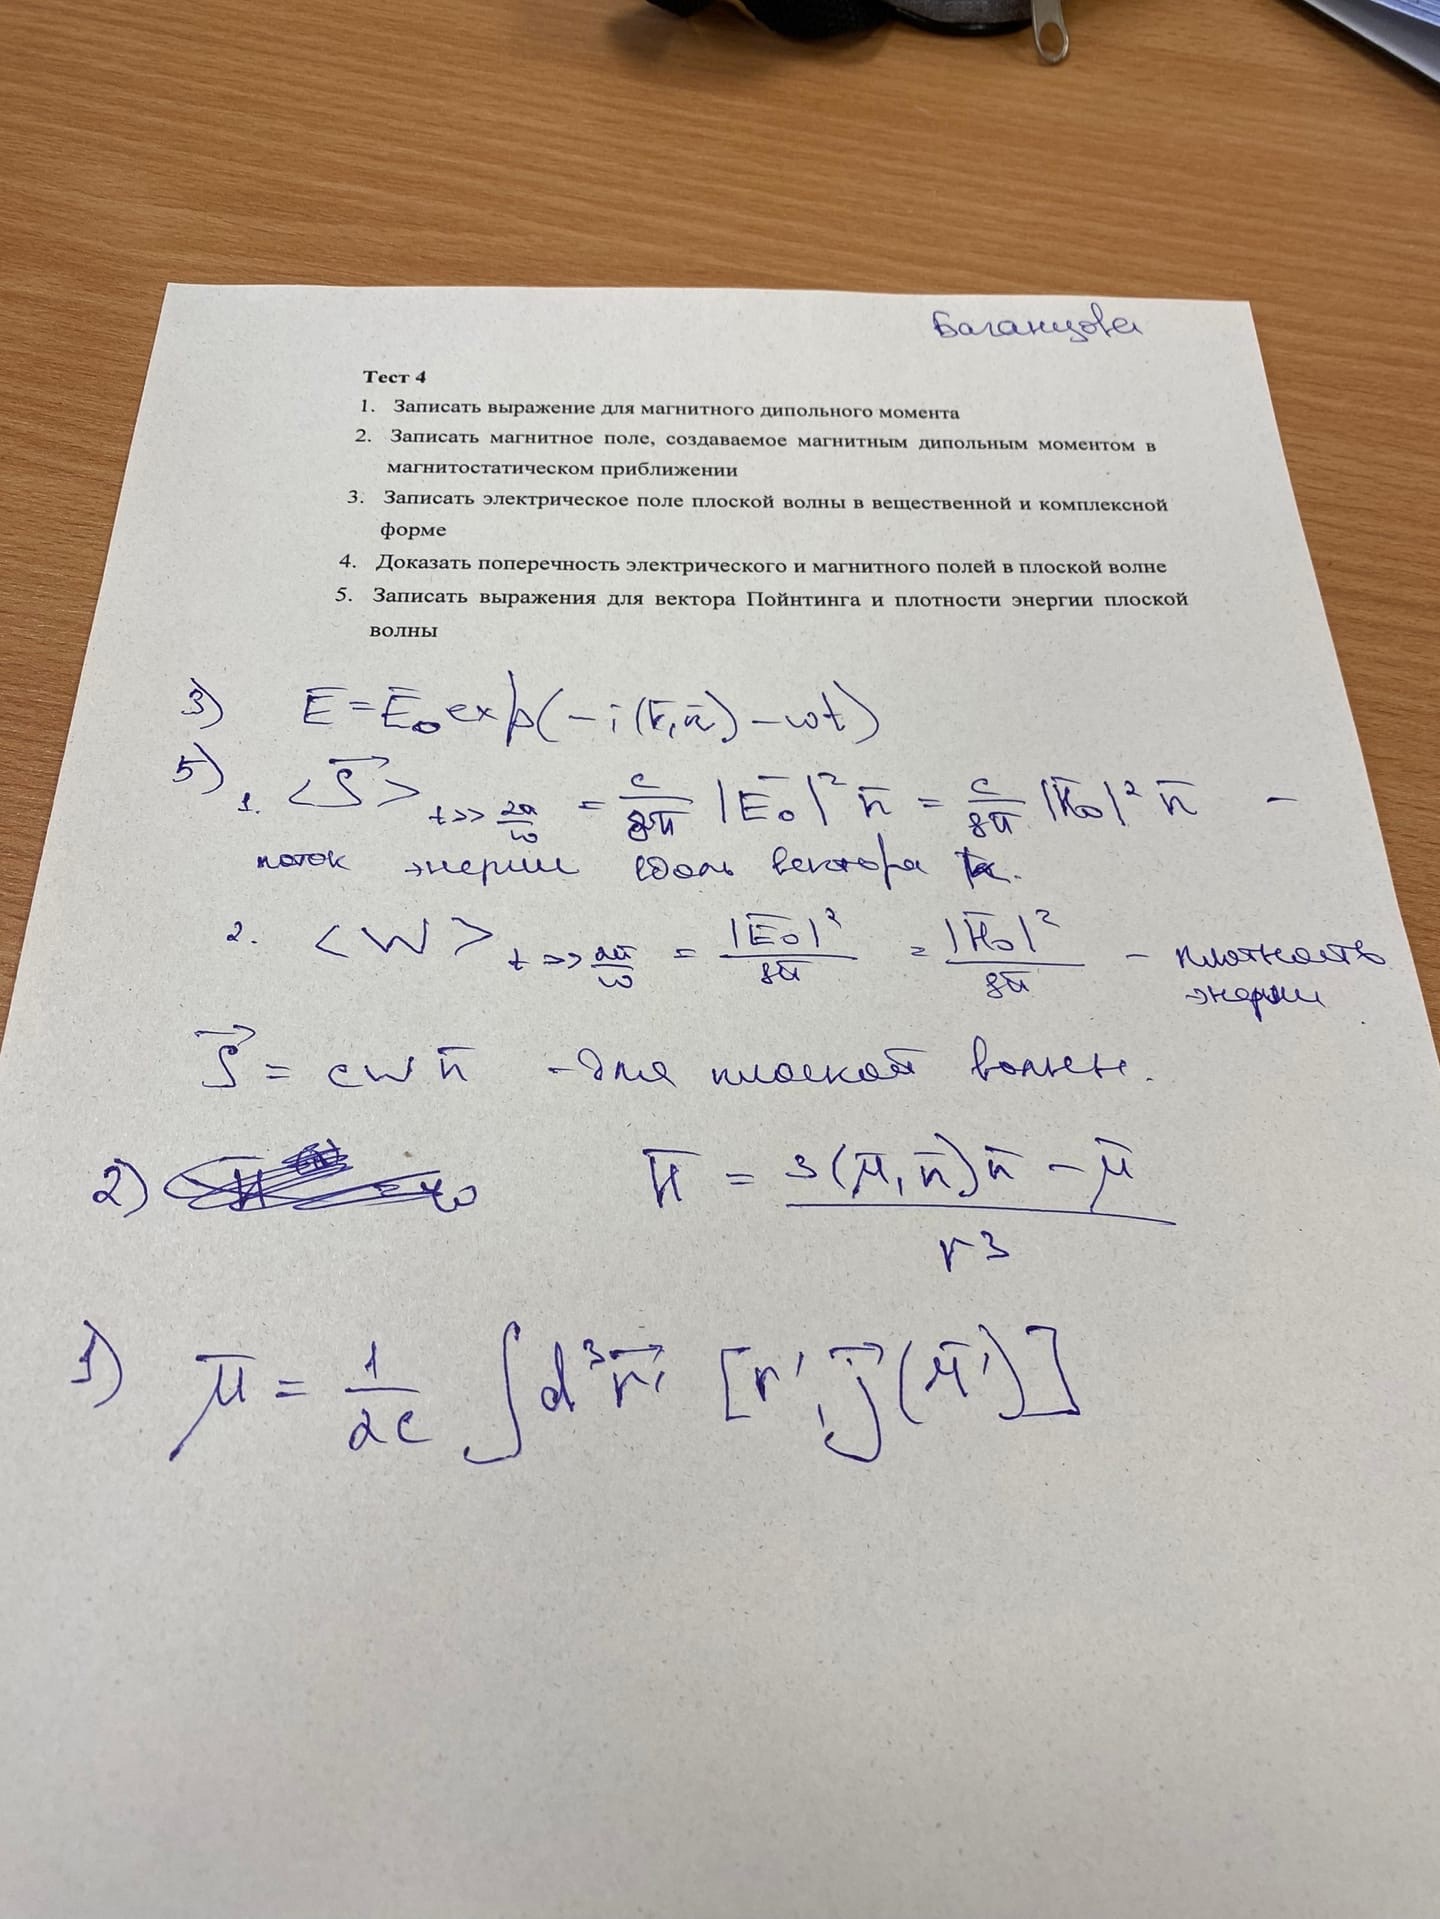 Баганцова
Тест 4
1. Записать выражение для магнитного дипольного момента
2. Записать магнитное поле, создаваемое магнитным дипольным моментом в
магнитостатическом приближении
3. Записать электрическое поле плоской волны в вещественной и комплексной
форме
4. Доказать поперечность электрического и магнитного полей в плоской волне
5. Записать выражения для вектора Пойнтинга и плотности энергии плоской
волны
3) E̅ = E̅₀ exp(-i(k̅,n̅) - ωt)
5) 1. <S⃗>_{t>>2π/ω} = c/8π |E̅₀|² n̅ = c/8π |H̅₀|² n̅ -
поток энергии вдоль вектора k̅.
2. <W>_{t>>2π/ω} = |E̅₀|²/8π = |H̅₀|²/8π - плотность
энергии
S⃗ = cWn̅ - для плоской волны.
2) H̅ = (3(μ̅,n̅)n̅ - μ̅)/r³
1) μ̅ = 1/2c ∫d³r⃗' [r', j⃗(r̅')]